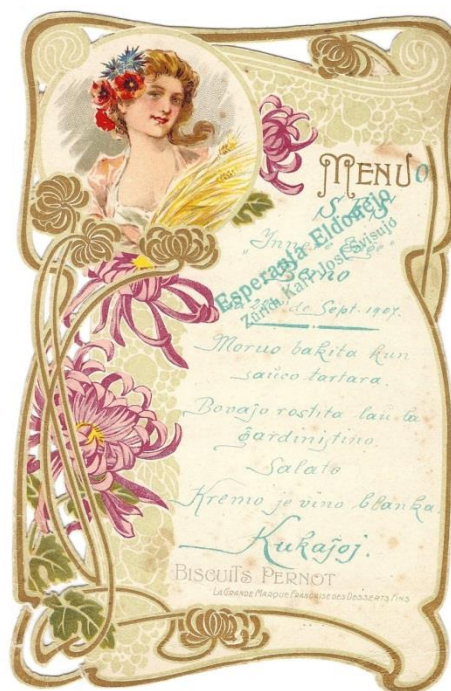 MENUO
S.E.S.
Berno
de Sept. 1907.
Esperanja Eldonejo
Zürich Karl Jost Svisujo
Moruo bakita kun
saŭco tartara.
Bovaĵo rostita laŭ la
ĝardinistino.
Salato
Kremo je vino blanka.
Kukaĵoj.
BISCUITS PERNOT
LA GRANDE MARQUE FRANÇAISE DES DESSERTS FINS